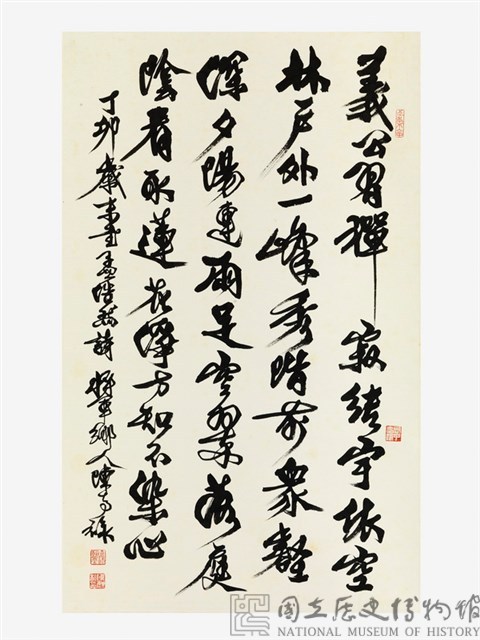 義公習禪寂結宇依空
林戶外一峰秀階前眾壑
深夕陽連雨足空翠落庭
陰看取蓮花淨方知不染心
丁卯歲末書孟浩然詩 將軍鄉人陳
國立歷史博物館
NATIONAL MUSEUM OF HISTORY